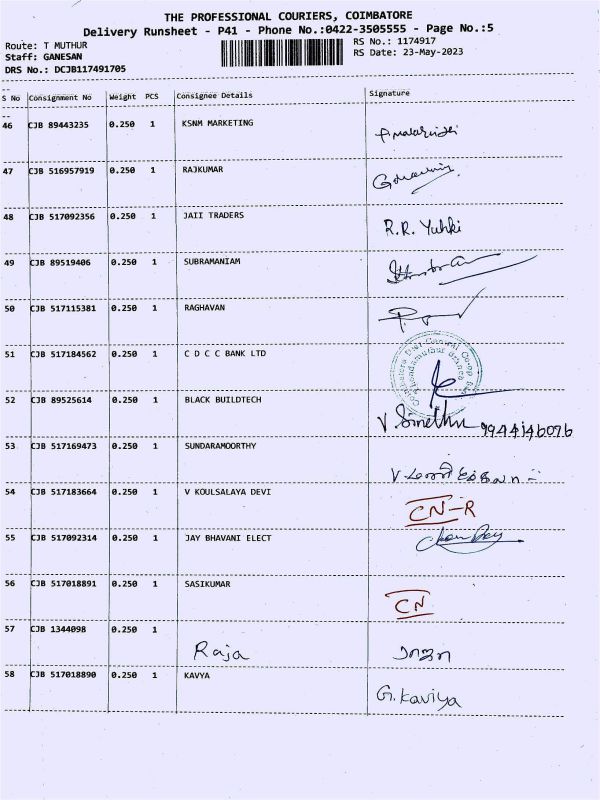 THE PROFESSIONAL COURIERS, COIMBATORE
Delivery Runsheet - P41 - Phone No.:0422-3505555 - Page No.:5
Route: T MUTHUR RS No.: 1174917
Staff: GANESAN RS Date: 23-May-2023
DRS No.: DCJB117491705
S No Consignment No Weight PCS Consignee Details Signature
46 CJB 89443235 0.250 1 KSNM MARKETING
47 CJB 516957919 0.250 1 RAJKUMAR
48 CJB 517092356 0.250 1 JAII TRADERS R.R. Yuhki
49 CJB 89519406 0.250 1 SUBRAMANIAM
50 CJB 517115381 0.250 1 RAGHAVAN
51 CJB 517184562 0.250 1 C D C C BANK LTD
52 CJB 89525614 0.250 1 BLACK BUILDTECH 9944146096
53 CJB 517169473 0.250 1 SUNDARAMOORTHY
54 CJB 517183664 0.250 1 V KOULSALAYA DEVI CN-R
55 CJB 517092314 0.250 1 JAY BHAVANI ELECT
56 CJB 517018891 0.250 1 SASIKUMAR CN
57 CJB 1344098 0.250 1 Raja ராஜா
58 CJB 517018890 0.250 1 KAVYA G. Kaviya